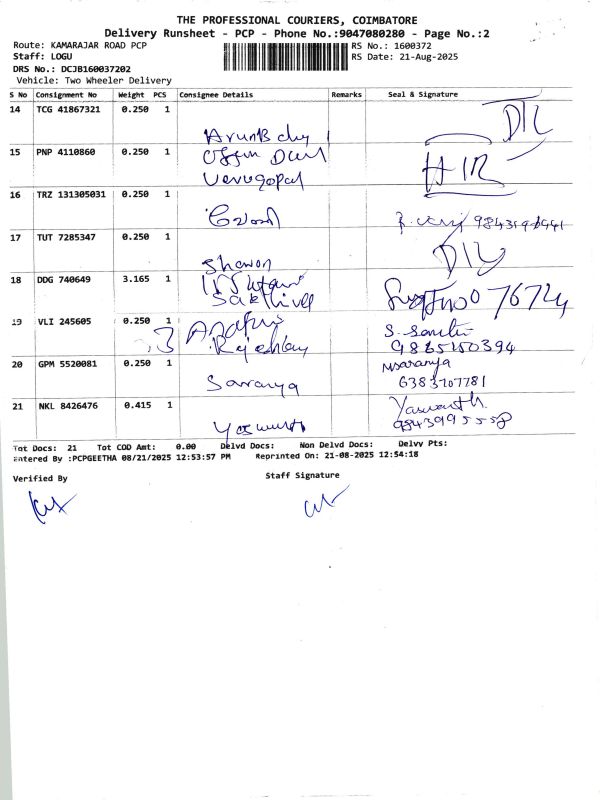 THE PROFESSIONAL COURIERS, COIMBATORE
Delivery Runsheet - PCP - Phone No.:9047080280 - Page No.:2
Route: KAMARAJAR ROAD PCP RS No.: 1600372
Staff: LOGU RS Date: 21-Aug-2025
DRS No.: DCJB160037202
Vehicle: Two Wheeler Delivery
S No Consignment No Weight PCS Consignee Details Remarks Seal & Signature
14 TCG 41867321 0.250 1
15 PNP 4110860 0.250 1
Venugopal
16 TRZ 131305031 0.250 1
17 TUT 7285347 0.250 1
Shawon
18 DDG 740649 3.165 1
Sakthivel
19 VLI 245605 0.250 1
9865150394
20 GPM 5520081 0.250 1
Saranya 6383707781
21 NKL 8426476 0.415 1
Yaswanth
9843995558
Tot Docs: 21 Tot COD Amt: 0.00 Delvd Docs: Non Delvd Docs: Delvy Pts:
Entered By :PCPGEETHA 08/21/2025 12:53:57 PM Reprinted On: 21-08-2025 12:54:18
Verified By Staff Signature